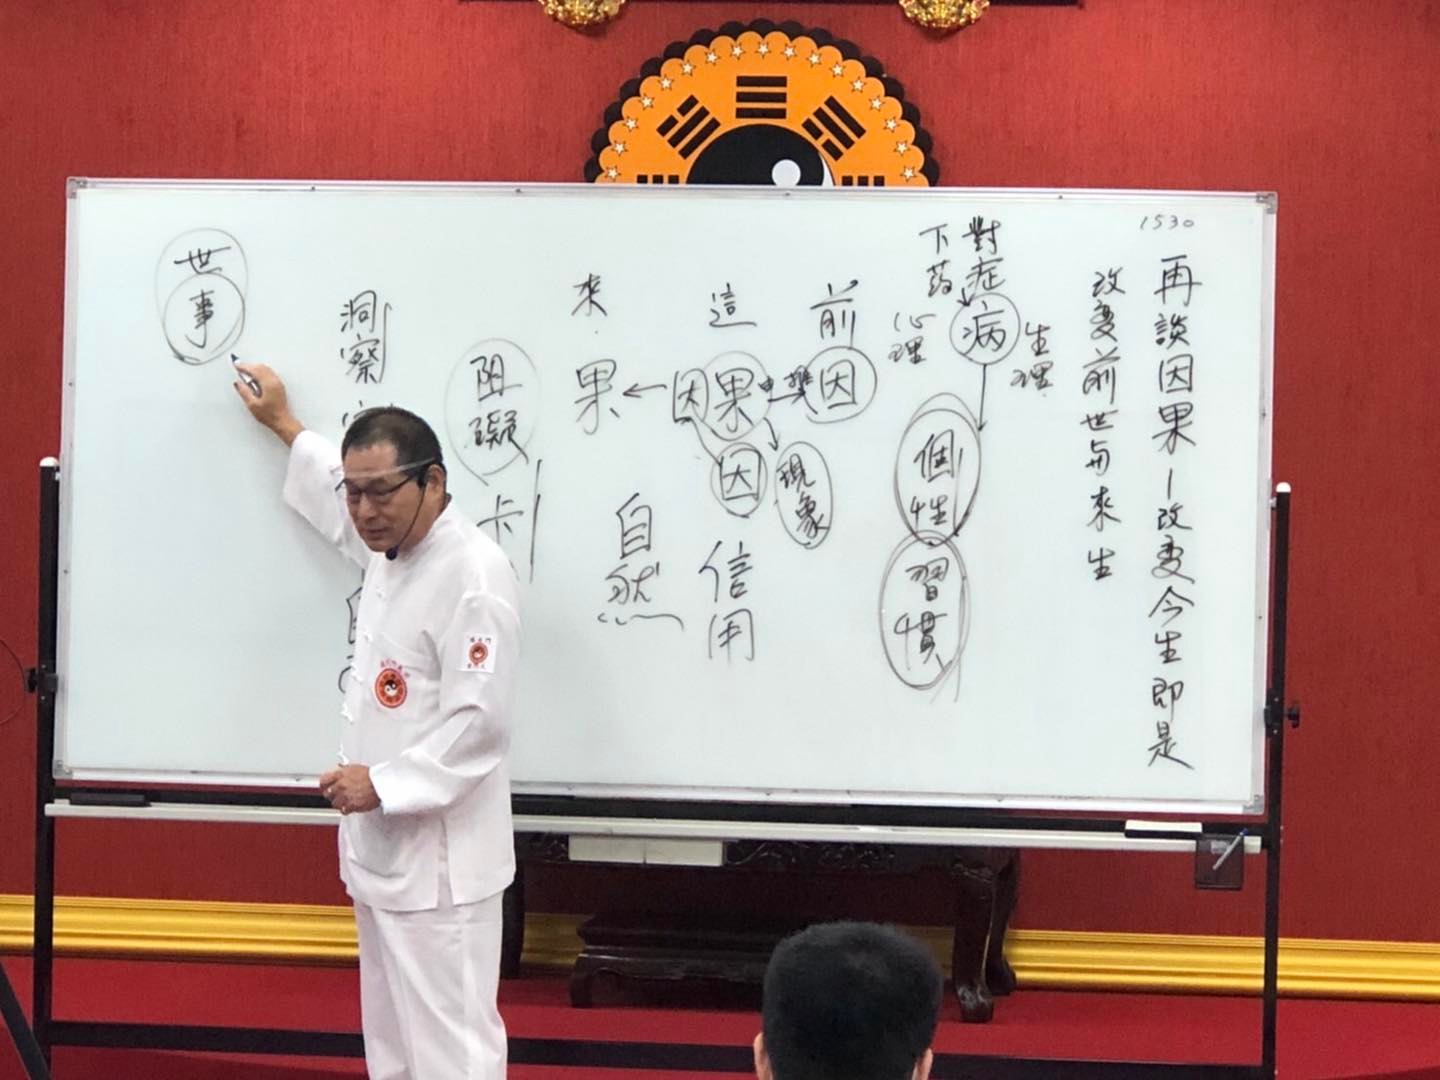 1530
再談因果—改变今生即是
改变前世与來生
對症
下药
病
生理
心理
個性
習慣
前因
這果
因
因
現象
信用
來果
自然
阻礙
卡
洞察
世事